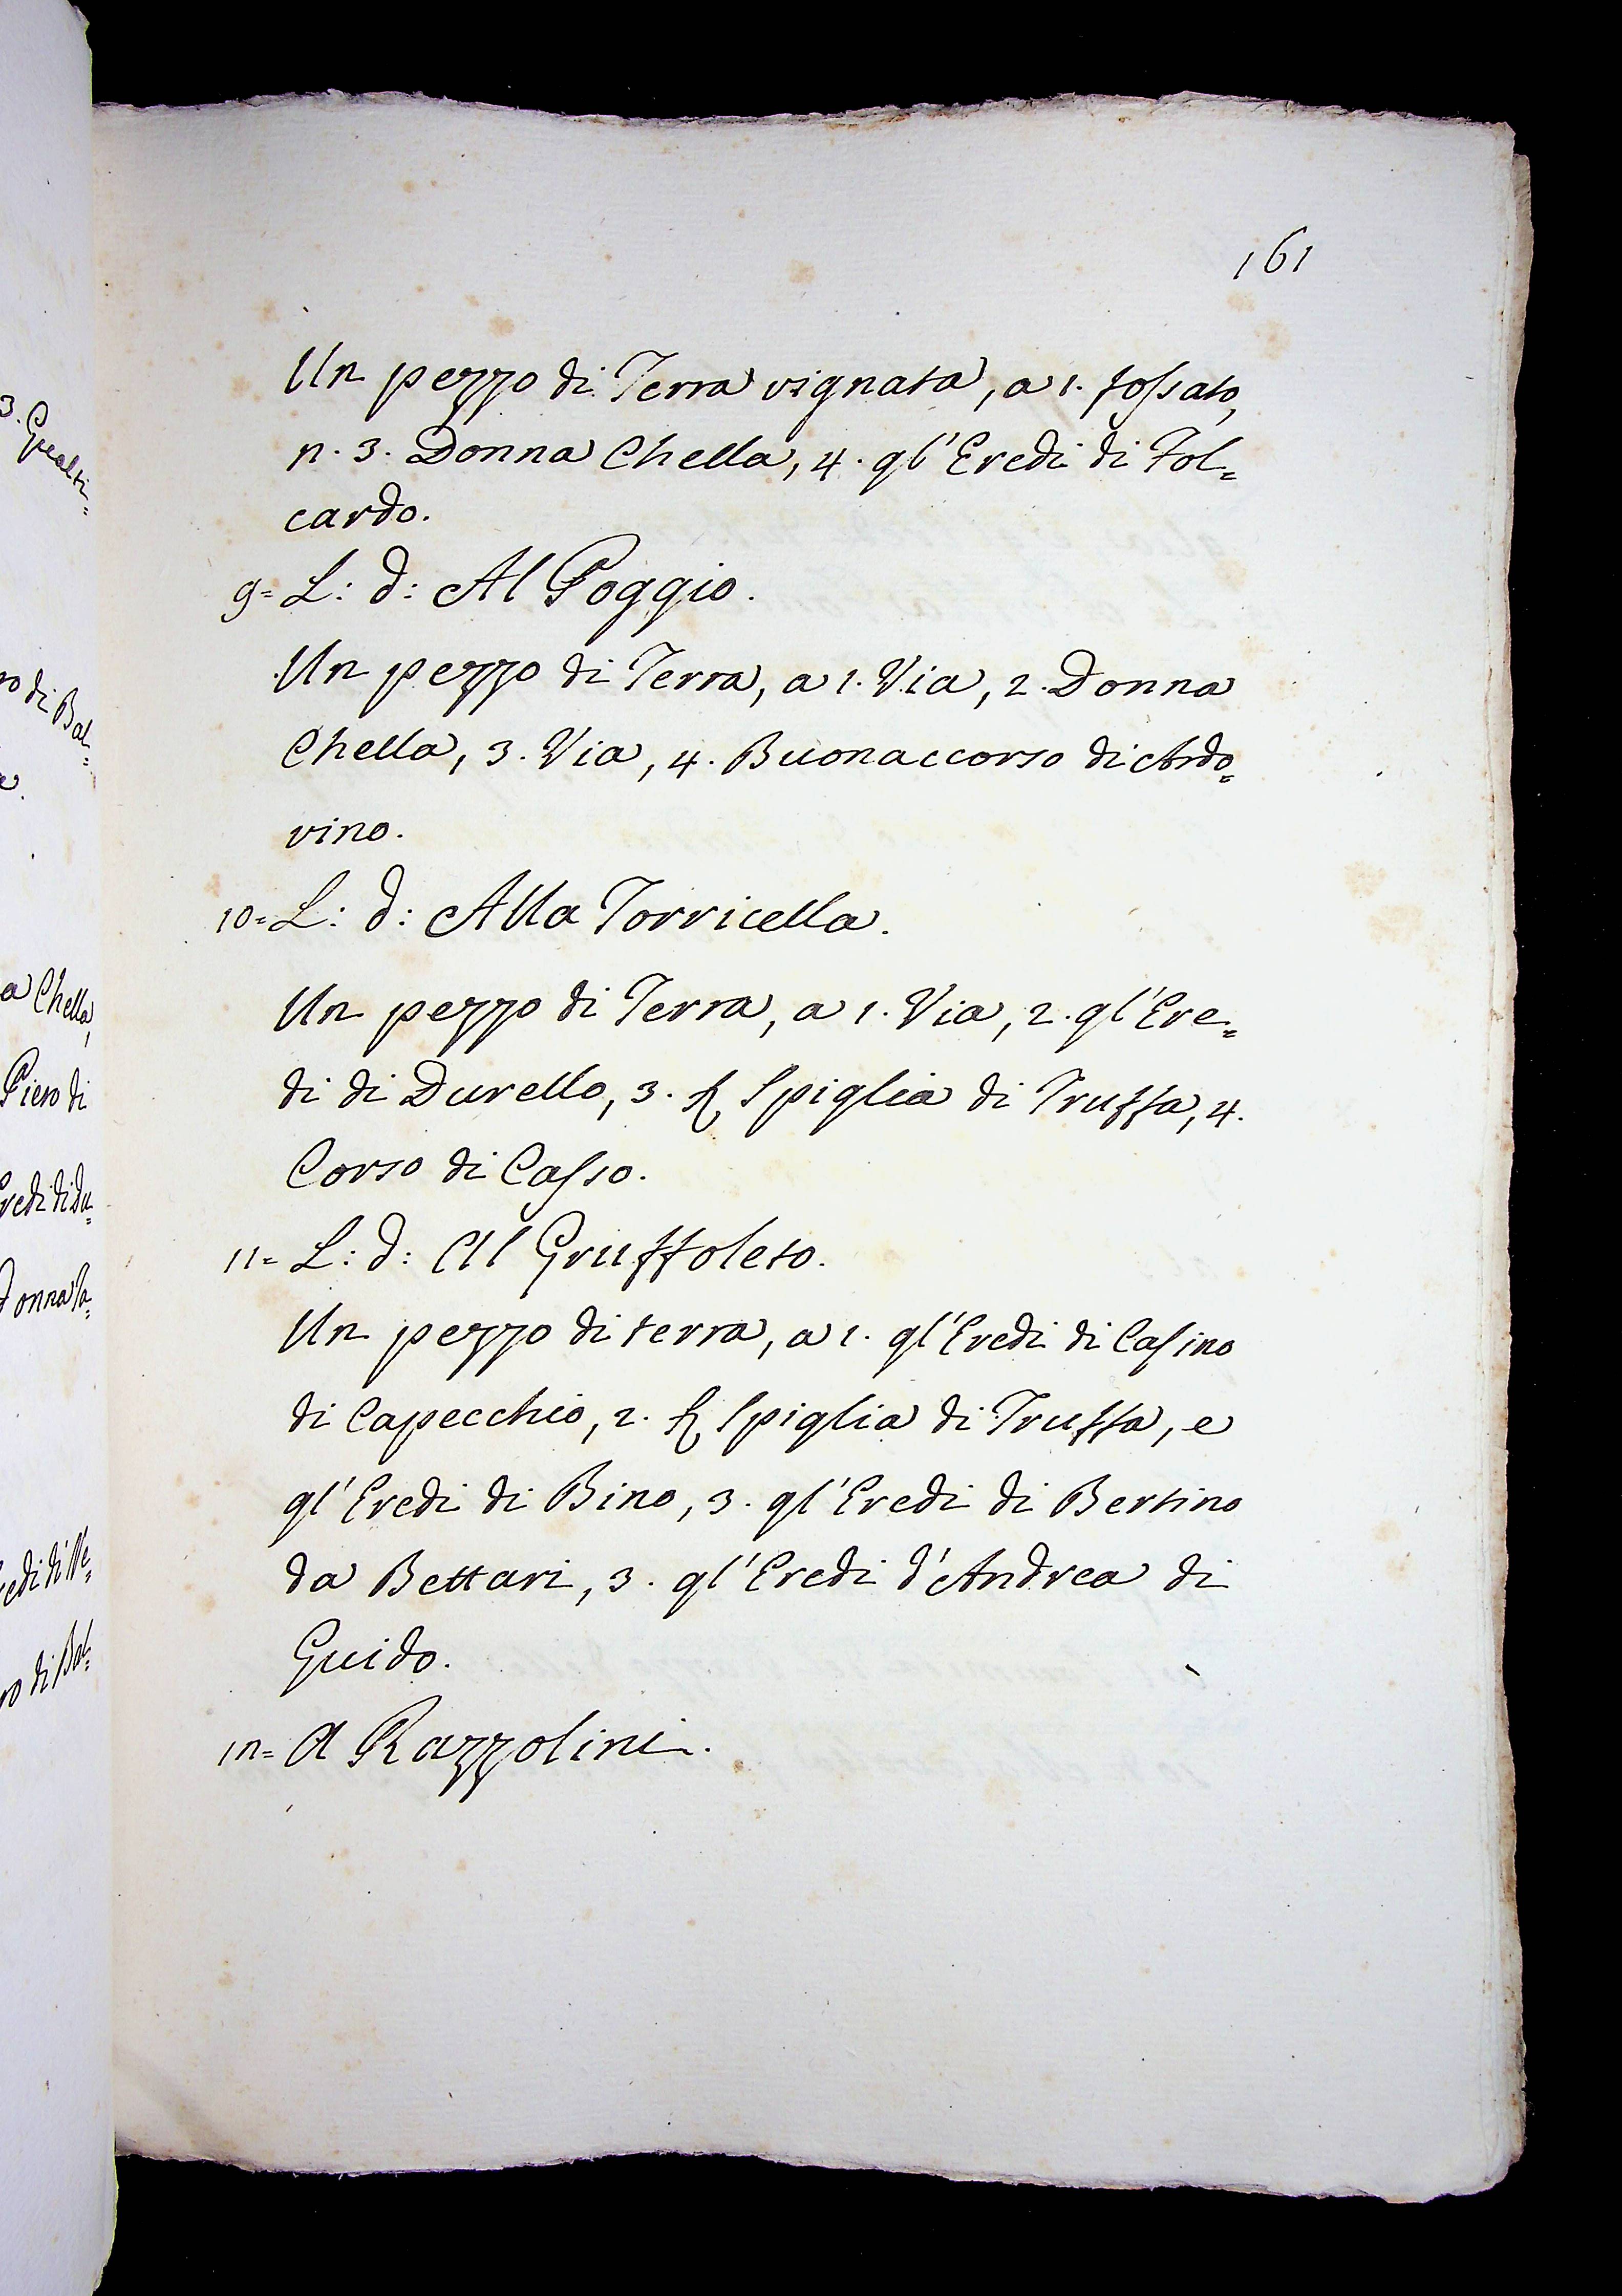 3. Gualti=
ro di Bal=
a Chella,
Piero di
redi di Du=
Donna Ta=
edi di Ne=
ro di Bal=
161
Un pezzo di Terra vignata, a 1. fossato,
n. 3. Donna Chella, 4. gl'Eredi di Fol=
cardo.
9= L: d: Al Poggio.
Un pezzo di Terra, a 1. Via, 2. Donna
Chella, 3. Via, 4. Buonaccorso di Ardo=
vino.
10= L: d: Alla Torricella.
Un pezzo di Terra, a 1. Via, 2. gl'Ere=
di di Durello, 3. Spiglia di Truffa, 4.
Corso di Casso.
11= L: d: Al Gruffoleto.
Un pezzo di terra, a 1. gl'Eredi di Casino
di Capecchio, 2. Spiglia di Truffa, e
gl'Eredi di Bino, 3. gl'Eredi di Bertino
da Bettari, 3. gl'Eredi d'Andrea di
Guido.
1n= A Razzolini.